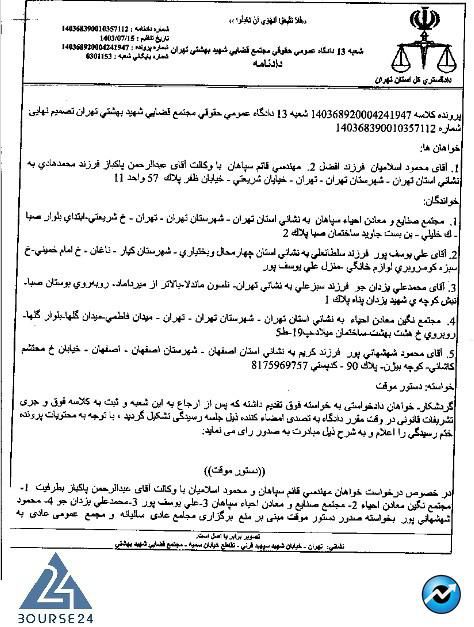 «فلا تتبعوا الهوی ان تعدلوا»
شماره دادنامه : 140368390010357112
تاریخ تنظیم : 1403/07/15
شماره پرونده : 140368920004241947
شماره بایگانی شعبه : 0301153
شعبه 13 دادگاه عمومي حقوقي مجتمع قضایي شهید بهشتي تهران
دادنامه
دادگستری کل استان تهران
پرونده کلاسه 140368920004241947 شعبه 13 دادگاه عمومي حقوقي مجتمع قضایي شهید بهشتي تهران تصمیم نهایی
شماره 140368390010357112
خواهان ها:
1. آقای محمود اسلامیان فرزند افضل 2. مهندسي قائم سپاهان با وکالت آقای عبدالرحمن پاکباز فرزند محمدهادي به
نشاني استان تهران - شهرستان تهران - تهران - خیابان شریعتي - خیابان ظفر پلاك 57 واحد 11
خواندگان:
1. مجتمع صنایع و معادن احیاء سپاهان به نشاني استان تهران - شهرستان تهران - تهران - خ شریعتي-ابتداي بلوار صبا
-ك خلیلي - بن بست جاوید ساختمان صبا پلاك 2
2. آقای علي یوسف پور فرزند سلطانعلي به نشاني استان چهارمحال وبختیاري - شهرستان کیار - ناغان - خ امام خمیني-خ
سبزه کوه-روبروي لوازم خانگي -منزل علي یوسف پور
3. آقای محمدعلي یزدان جو فرزند سبزعلي به نشاني تهران- نلسون ماندلا-بالاتر از میرداماد- روبه‌روي بوستان صبا-
نبش کوچه ي شهید یزدان پناه پلاك 1
4. مجتمع نگین معادن احیاء به نشاني استان تهران - شهرستان تهران - تهران - میدان فاطمي-میدان گلها-بلوار گلها-
روبروي خ هشت بهشت-ساختمان میلاد-پ19-ط5
5. آقای محمود شهشهاني پور فرزند کریم به نشاني استان اصفهان - شهرستان اصفهان - اصفهان - خیابان خ محتشم
کاشاني- کوچه بیژن- پلاك 90 - کدپستي 8175969757
خواسته: دستور موقت
گردشکار- خواهان دادخواستی به خواسته فوق تقدیم داشته که پس از ارجاع به این شعبه و ثبت به کلاسه فوق و جری
تشریفات قانونی در وقت مقرر دادگاه به تصدی امضاء کننده ذیل جلسه رسیدگی تشکیل گردید ، با توجه به محتویات پرونده
ختم رسیدگی را اعلام و به شرح ذیل مبادرت به صدور رای می نماید:
((دستور موقت))
در خصوص درخواست خواهان مهندسي قائم سپاهان و محمود اسلامیان با وکالت آقای عبدالرحمن پاکباز بطرفیت 1-
مجتمع نگین معادن احیاء 2- مجتمع صنایع و معادن احیاء سپاهان 3-علي یوسف پور 3-محمدعلي یزدان جو 4- محمود
شهشهاني پور بخواسته صدور دستور موقت مبنی بر منع برگزاری مجامع عادی سالیانه و مجمع عمومی عادی به
تصویر برابر با اصل است.
نشانی: تهران - خیابان شهید سپهبد قرنی - تقاطع خیابان سمیه - مجتمع قضایی شهید بهشتی
BOURSE24